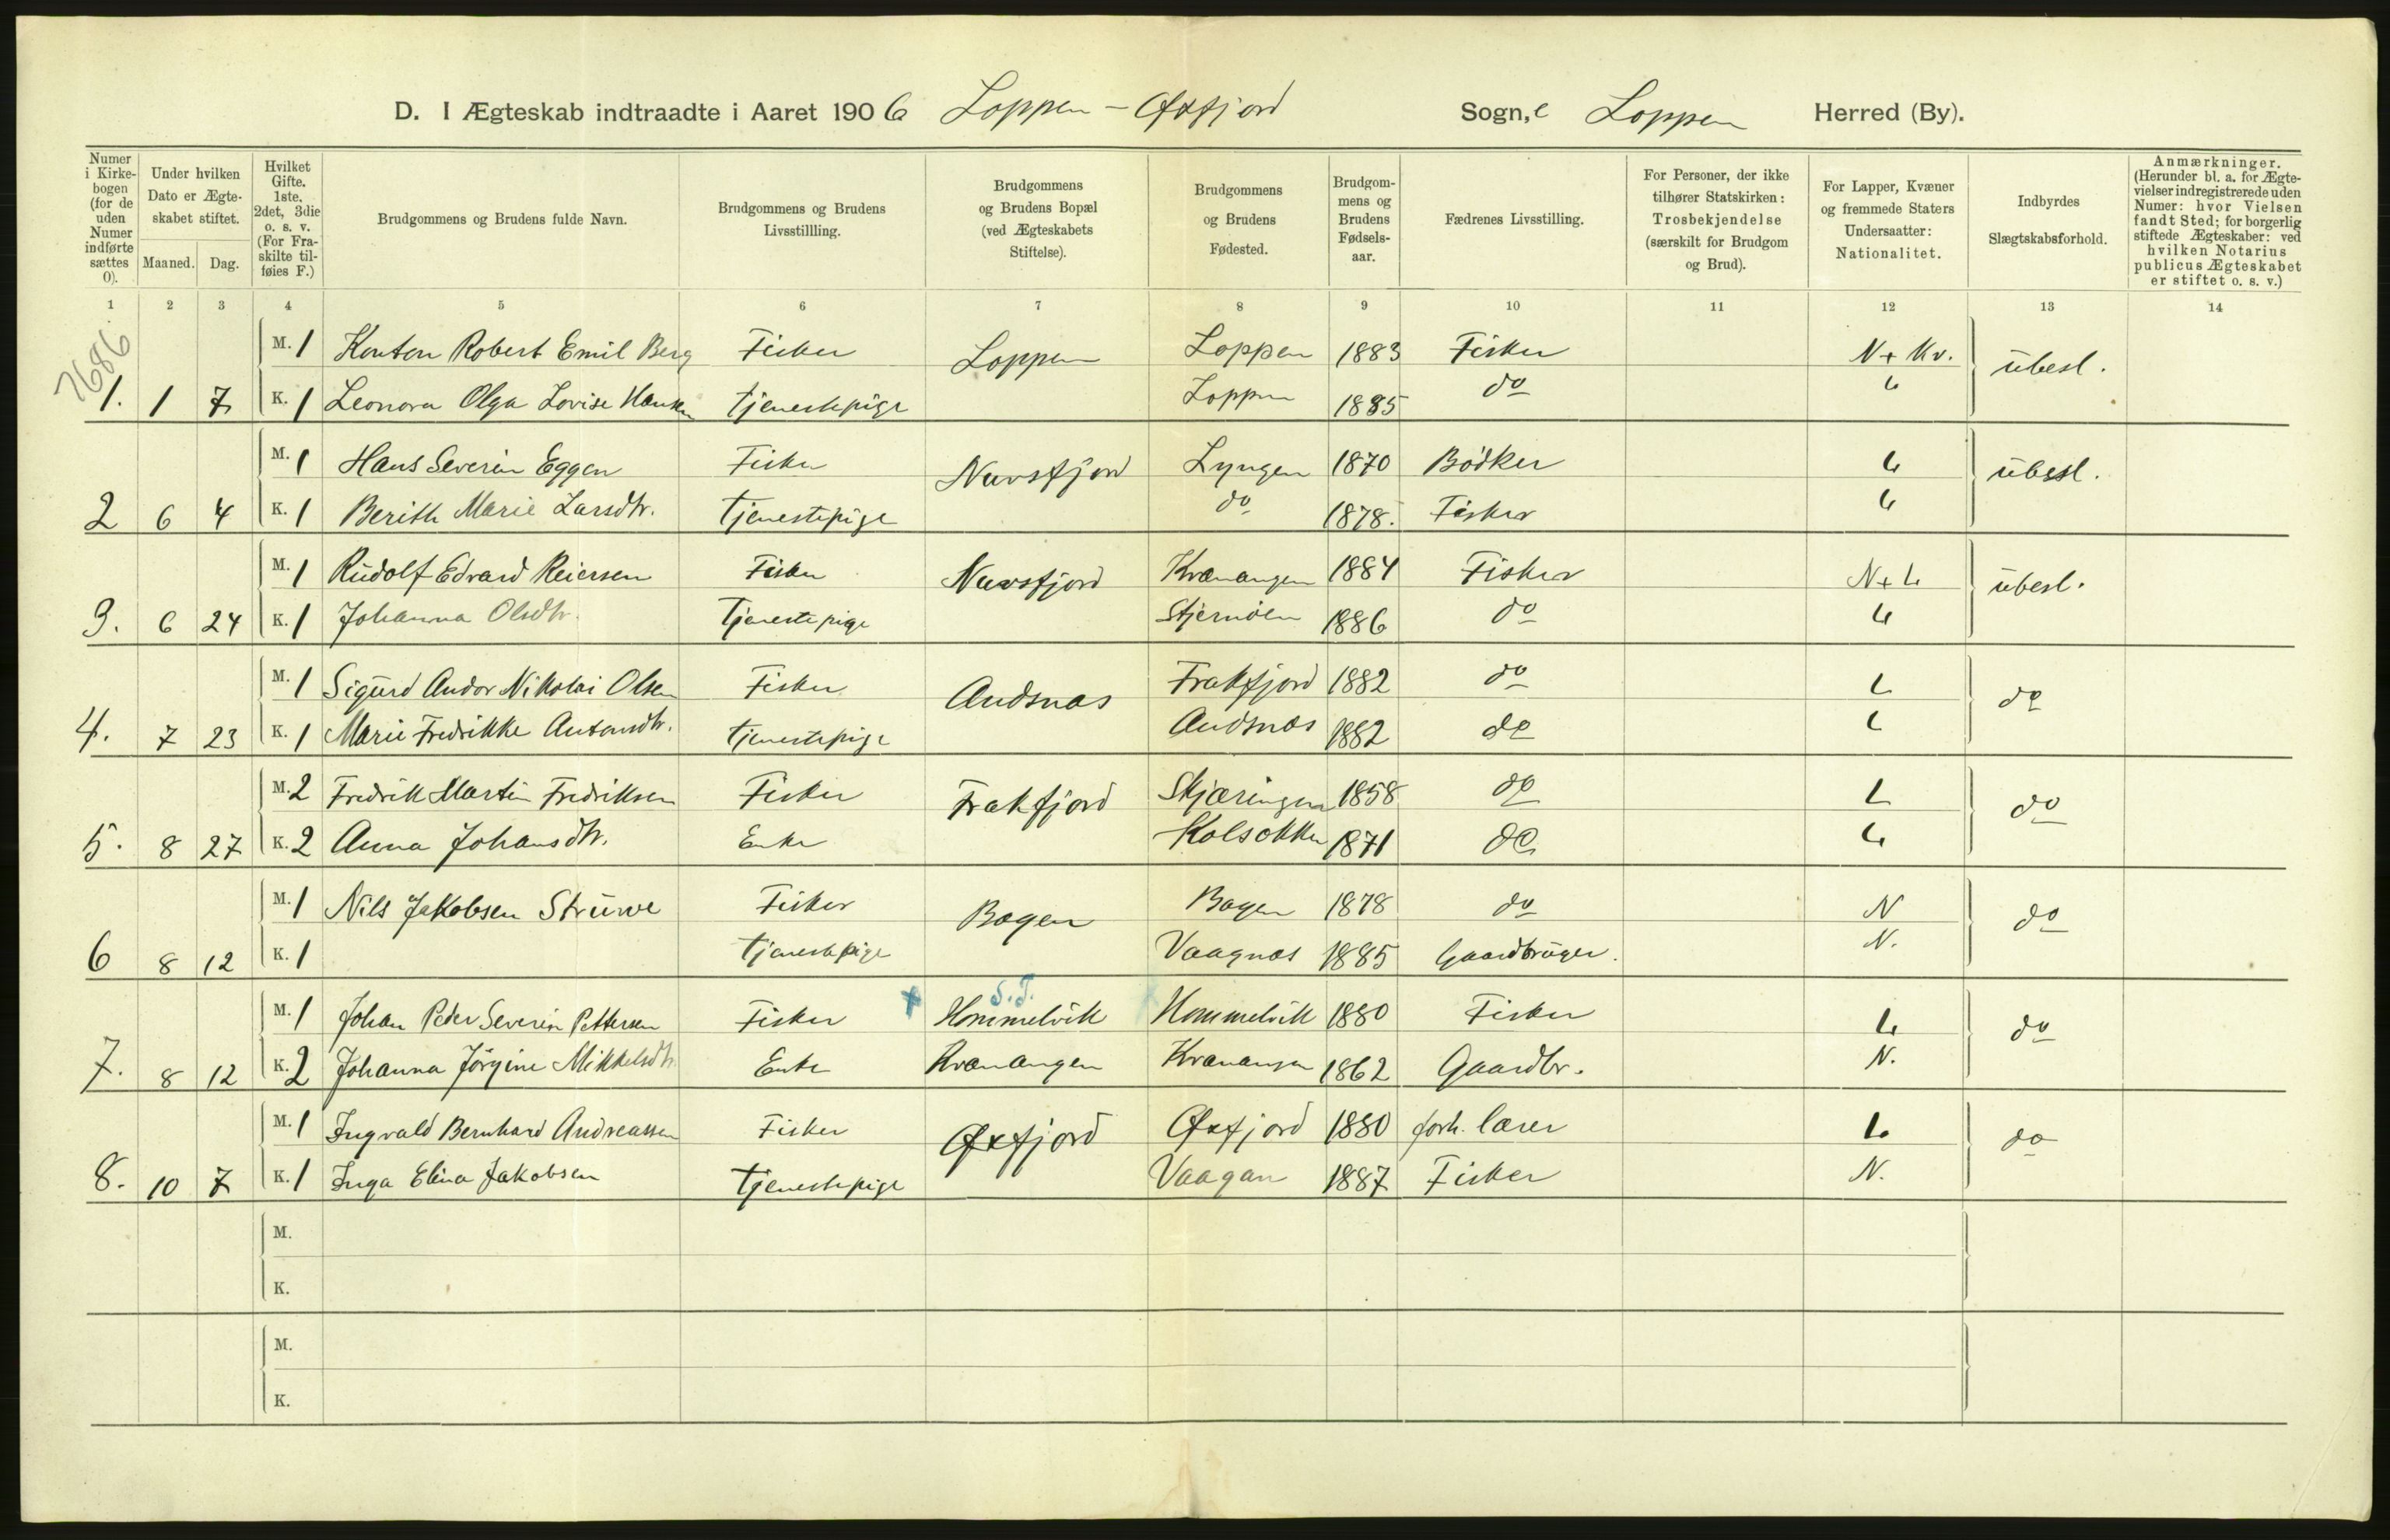 D. I Ægteskab indtraadte i Aaret 1906 Loppen - Øxfjord Sogn, e Loppen Herred (By).
Numer i Kirkebogen (for de uden Numer indførte sættes 0).
Under hvilken Dato er Ægteskabet stiftet.
Maaned. Dag.
Hvilket Gifte. 1ste. 2det, 3die o. s. v. (For Fraskilte tilføies F.)
Brudgommens og Brudens fulde Navn.
Brudgommens og Brudens Livsstillling.
Brudgommens og Brudens Bopæl (ved Ægteskabets Stiftelse).
Brudgommens og Brudens Fødested.
Brudgommens og Brudens Fødselsaar.
Fædrenes Livsstilling.
For Personer, der ikke tilhører Statskirken: Trosbekjendelse (særskilt for Brudgom og Brud).
For Lapper, Kvæner og fremmede Staters Undersaatter: Nationalitet.
Indbyrdes Slægtskabsforhold.
Anmærkninger. (Herunder bl. a. for Ægtevielser indregistrerede uden Numer: hvor Vielsen fandt Sted; for borgerlig stiftede Ægteskaber: ved hvilken Notarius publicus Ægteskabet er stiftet o. s. v.)
1 2 3 4 5 6 7 8 9 10 11 12 13 14
7686
M. 1 Konton Robert Emil Berg Fisker Loppen Loppen 1883 Fisker N + Kv. übesl.
1. 1 7 K. 1 Leonora Olga Lovise Hansen Tjenestepige Loppen 1885 do L
M. 1 Hans Severin Eggen Fisker Nuvsfjord Lyngen 1870 Bödker L übesl.
2 6 4 K. 1 Berith Marie Larsdtr. Tjenestepige do 1878. Fisker L
M. 1 Rüdolf Edvard Reiersen Fisker Nuvsfjord Kvænangen 1884 Fisker N + L übesl.
3. 6 24 K. 1 Johanna Olsdtr. Tjenestepige Stjernöen 1886 do L
M. 1 Sigürd Andor Nikolai Olsen Fisker Andsnæs Frakfjord 1882 do L do
4. 7 23 K. 1 Marie Fredrikke Antonsdtr. Tjenestepige Andsnæs 1882 do L
M. 2 Fredrik Martin Fredriksen Fisker Frakfjord Skjæringen 1858 do L do
5. 8 27 K. 2 Anna Johansdtr. Enke 1871 do L
M. 1 Nils Jakobsen Strüwe Fisker Bogen Bogen 1878 do N do
6 8 12 K. 1 Tjenestepige Vaagnæs 1885 Gaardbrüger. N.
S. T.
M. 1 Johan Peder Severin Pettersen Fisker Hommelvik Hommelvik 1880 Fisker L do
7. 8 12 K. 2 Johanna Jörgine Mikkelsdtr. Enke Kvænangen Kvænangen 1862 Gaardbr. N.
M. 1 Ingvald Bernhard Andreassen Fisker Øxfjord Øxfjord 1880 forh. lærer L do
8. 10 7 K. 1 Inga Elina Jakobsen Tjenestepige Vaagan 1887 Fisker N.
M.
K.
M.
K.